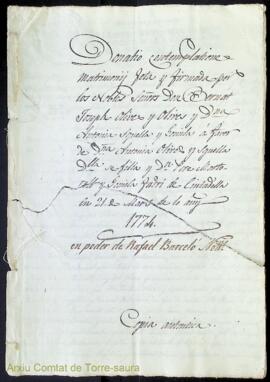 Donatio contemplatione
matrimonij feta y firmada per
los Nobles Señors Don Bernat
Joseph Olives y Olives y Dna
Antonia Squella y a favor
de Dna Antonia Olives y Squella
sa filla y Dn
de Ciutadella
en 21 de Mars de lo any
1774.
en poder de Rafael Barcelo Nott
Copia autentica.
Arxiu Comtat de Torre-saura